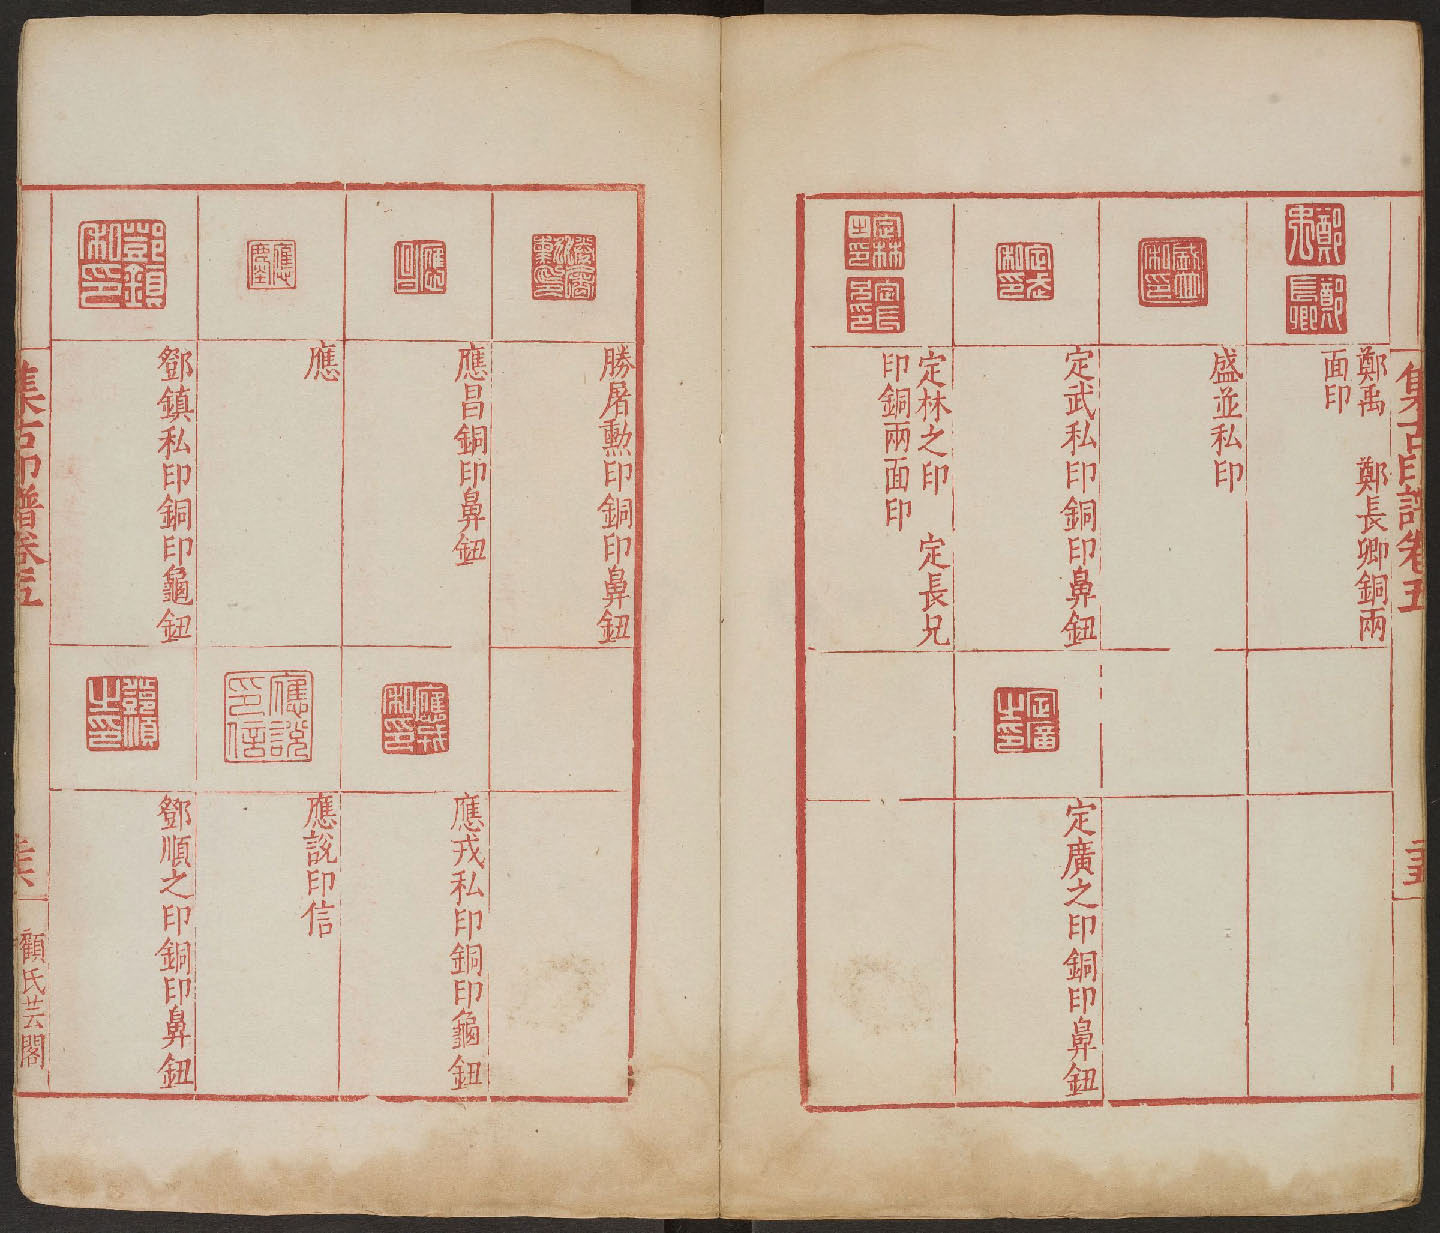 集古印譜卷五
鄭禹　鄭長卿銅兩
面印
盛並私印
定武私印銅印鼻鈕
定廣之印銅印鼻鈕
定林之印　定長兄
印銅兩面印
勝屠勳印銅印鼻鈕
應昌銅印鼻鈕
應戎私印銅印龜鈕
應
應說印信
鄧鎮私印銅印龜鈕
鄧順之印銅印鼻鈕
集古印譜卷五
顧氏芸閣